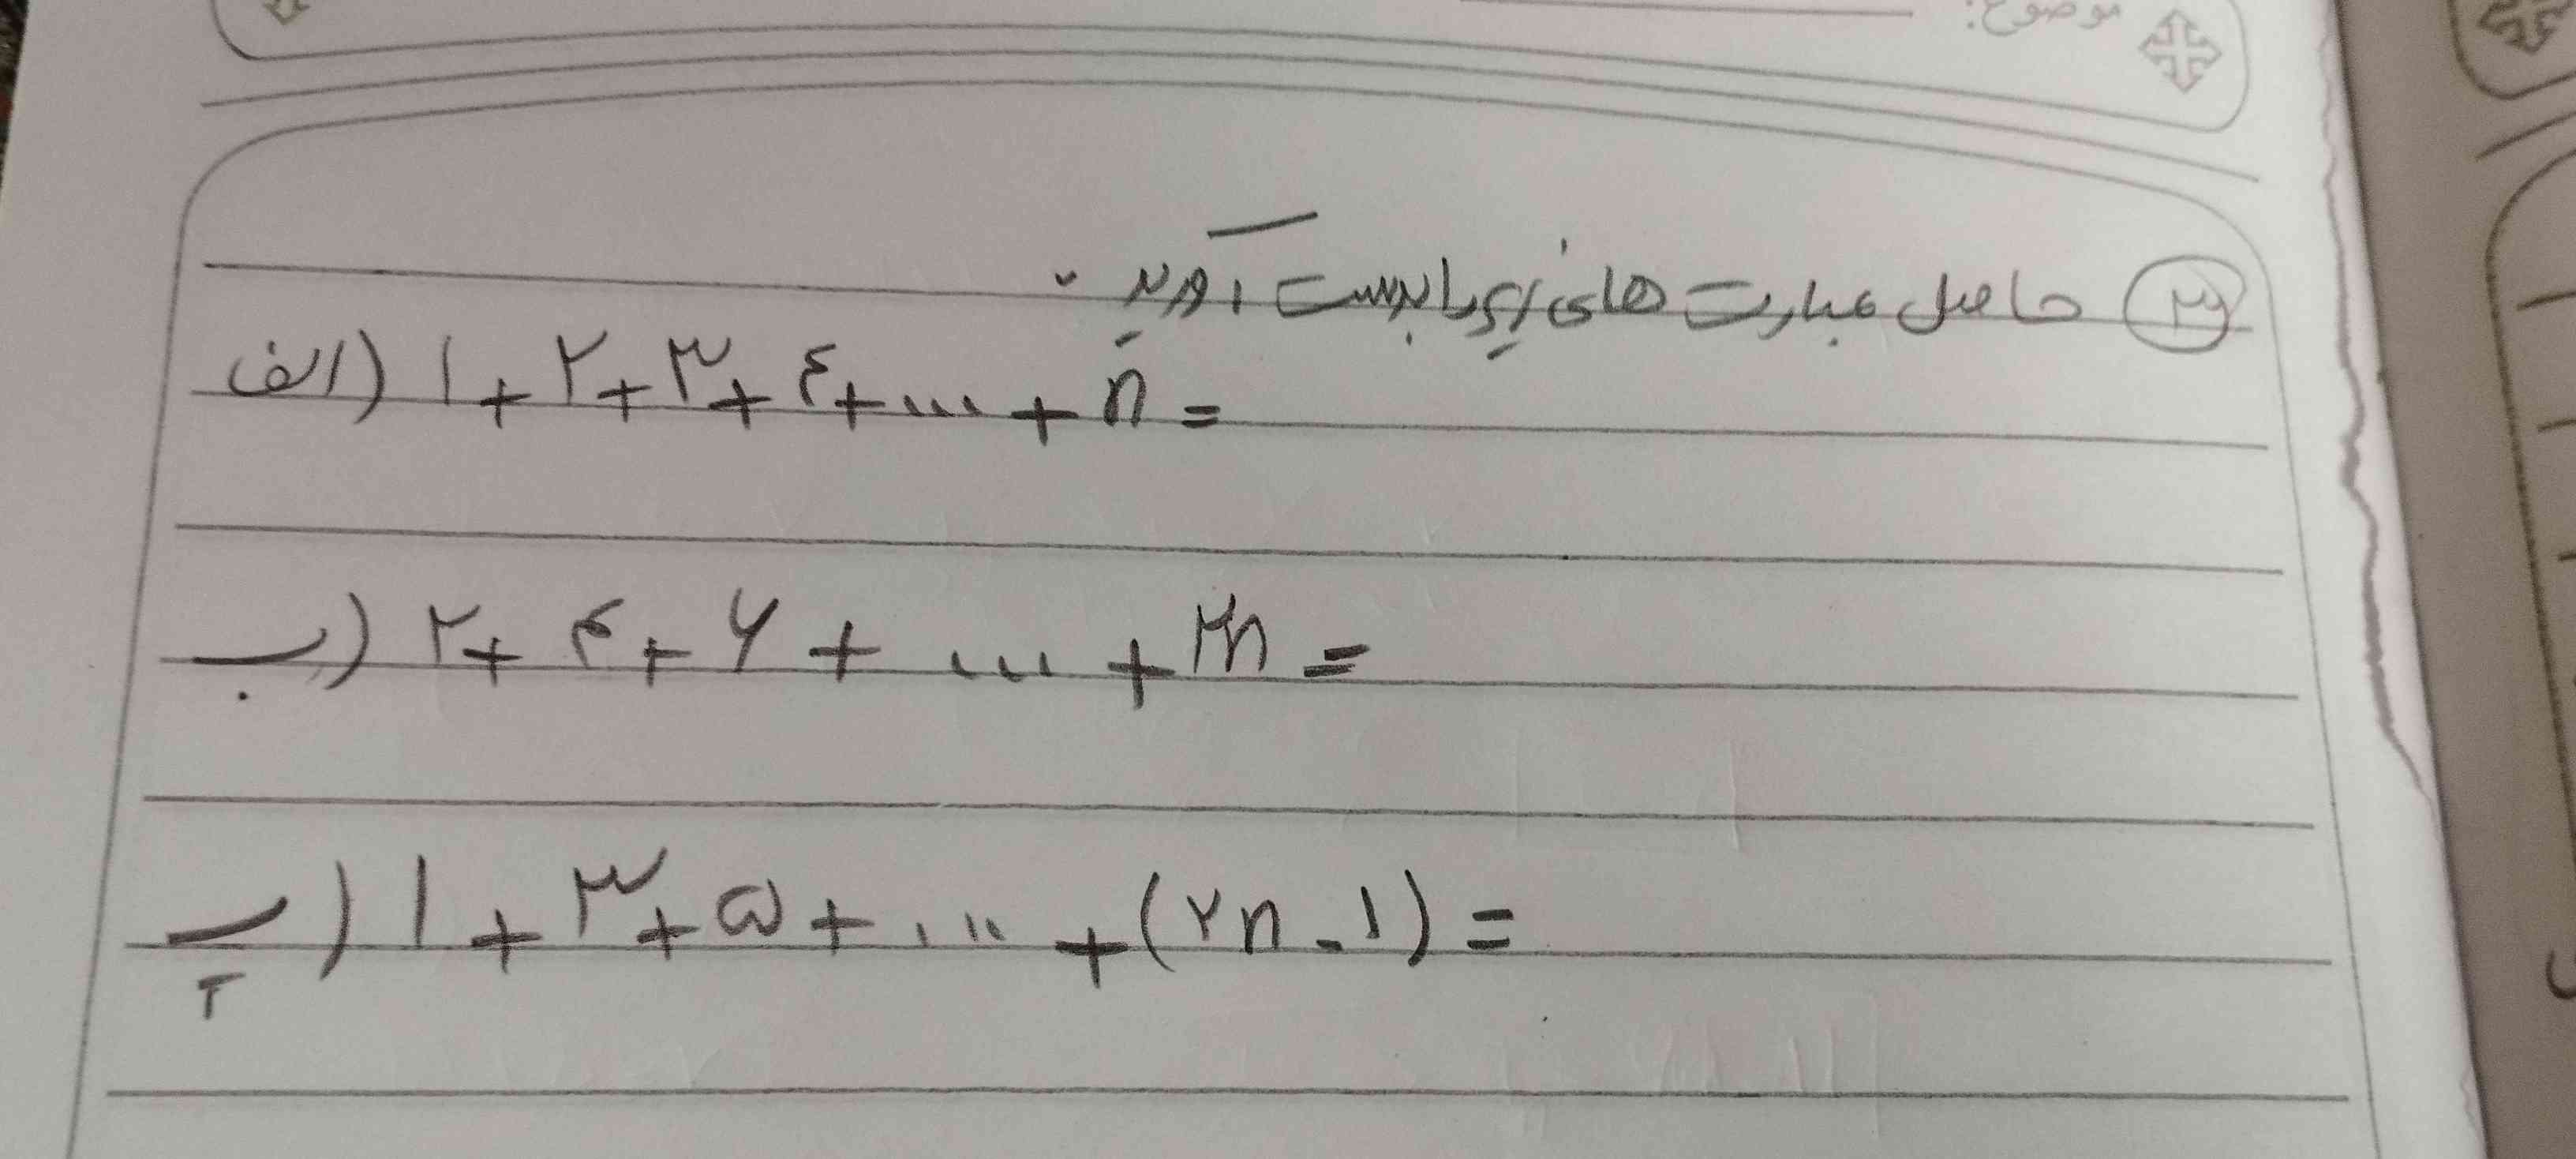 موضوع:
۳ حاصل عبارت های زیر را بدست آورید.
الف) ۱+۲+۳+۴+...+n=
ب) ۲+۴+۶+...+۲n=
پ) ۱+۳+۵+...+(۲n-۱)=